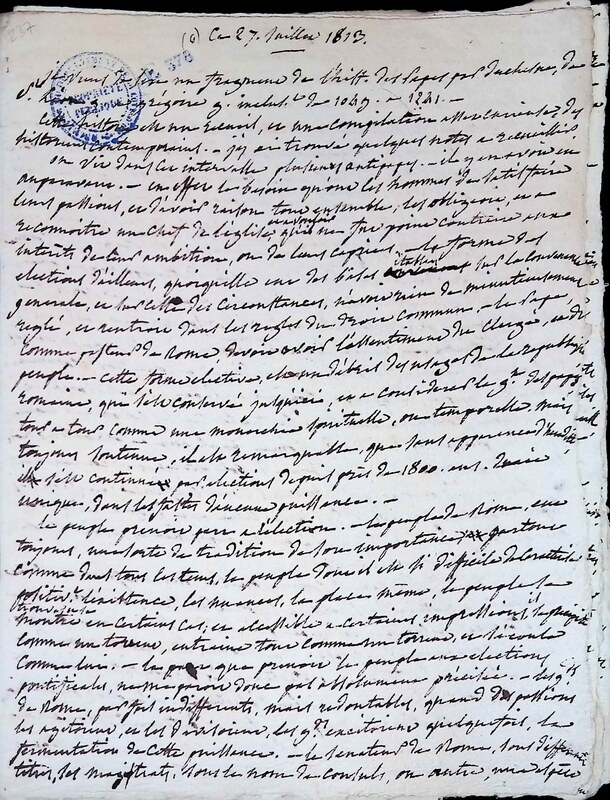 (6) Ce 27. Juillet 1813.
376
Je viens de lire un fragment de l'hist. des Papes par duchesne, de
Grégoire 9. inclus.t de 1049. - 1241. -
Cette histoire est un recueil, et une compilation assez curieuse des
historiens contemporains. - j'y ai trouvé quelques notes à recueillir
on vit dans cet intervalle plusieurs antipapes. - il y en avoit eu
auparavant. - en effet le besoin qu'ont les hommes de satisfaire
leurs passions, et d'avoir raison tout ensemble, les obligeoit, à
reconnoitre un chef de l'église qui ne fut point contraire aux
intérêts de leur ambition, ou de leurs caprices. - la forme des
elections d'ailleurs, quoiqu'elle eut des bases établies sur la convenance
generale, et sur celle des circonstances, n'avoit rien de minutieusement
reglé, et rentroit dans les regles du droit commun. - le Pape,
comme pasteur de Rome, devoit avoir l'assentiment du Clergé, et du
peuple. - Cette forme elective, est un débris des usages de la republique
romaine, qui s'est conservé jusqu'ici, et a considerer le g.t des papes
tour à tour comme une monarchie spirituelle, ou temporelle, mais
toujours soutenue, il est remarquable, que sans apparence d'heredité
elle s'est continuée par elections depuis près de 1800. ans.
unique, dans les fastes d'aucune puissance. -
le peuple prenoit part à l'élection. - le peuple de Rome, eut
toujours, une sorte de tradition de son importance partout
comme dans tous les tems, le peuple dont il est si difficile de
positiv.t l'existence, les nuances, la place même, le peuple se
montre en certains cas, et accessible a certains impressions, se
comme un torrent, entraine tout comme un torrent, et s'écoule
comme lui. - la part que prenoit le peuple aux elections
pontificales, ne me paroit donc pas absolument precisée. - les g.ds
de Rome, par fois indifferents, mais redoutables, quand des passions
les agitoient, et les divisoient, les g.ds excitoient quelquefois, la
fermentation de cette puissance. - le senateur de Rome, sous differents
titres, les magistrats, sous le nom de consuls, ou autre, une espèce